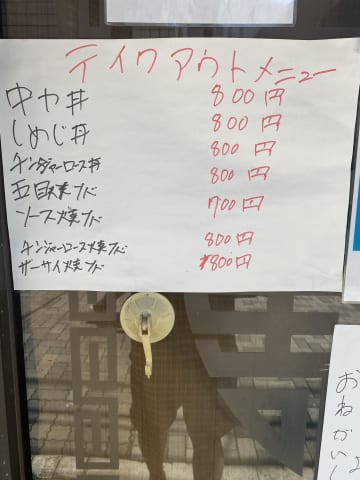 テイクアウトメニュー
中力丼 800円
しめじ丼 800円
チンジャーロース丼 800円
五目焼ソバ 800円
ソース焼ソバ 700円
チンジャーロース焼ソバ 800円
ザーサイ焼ソバ 800円
おねがいし